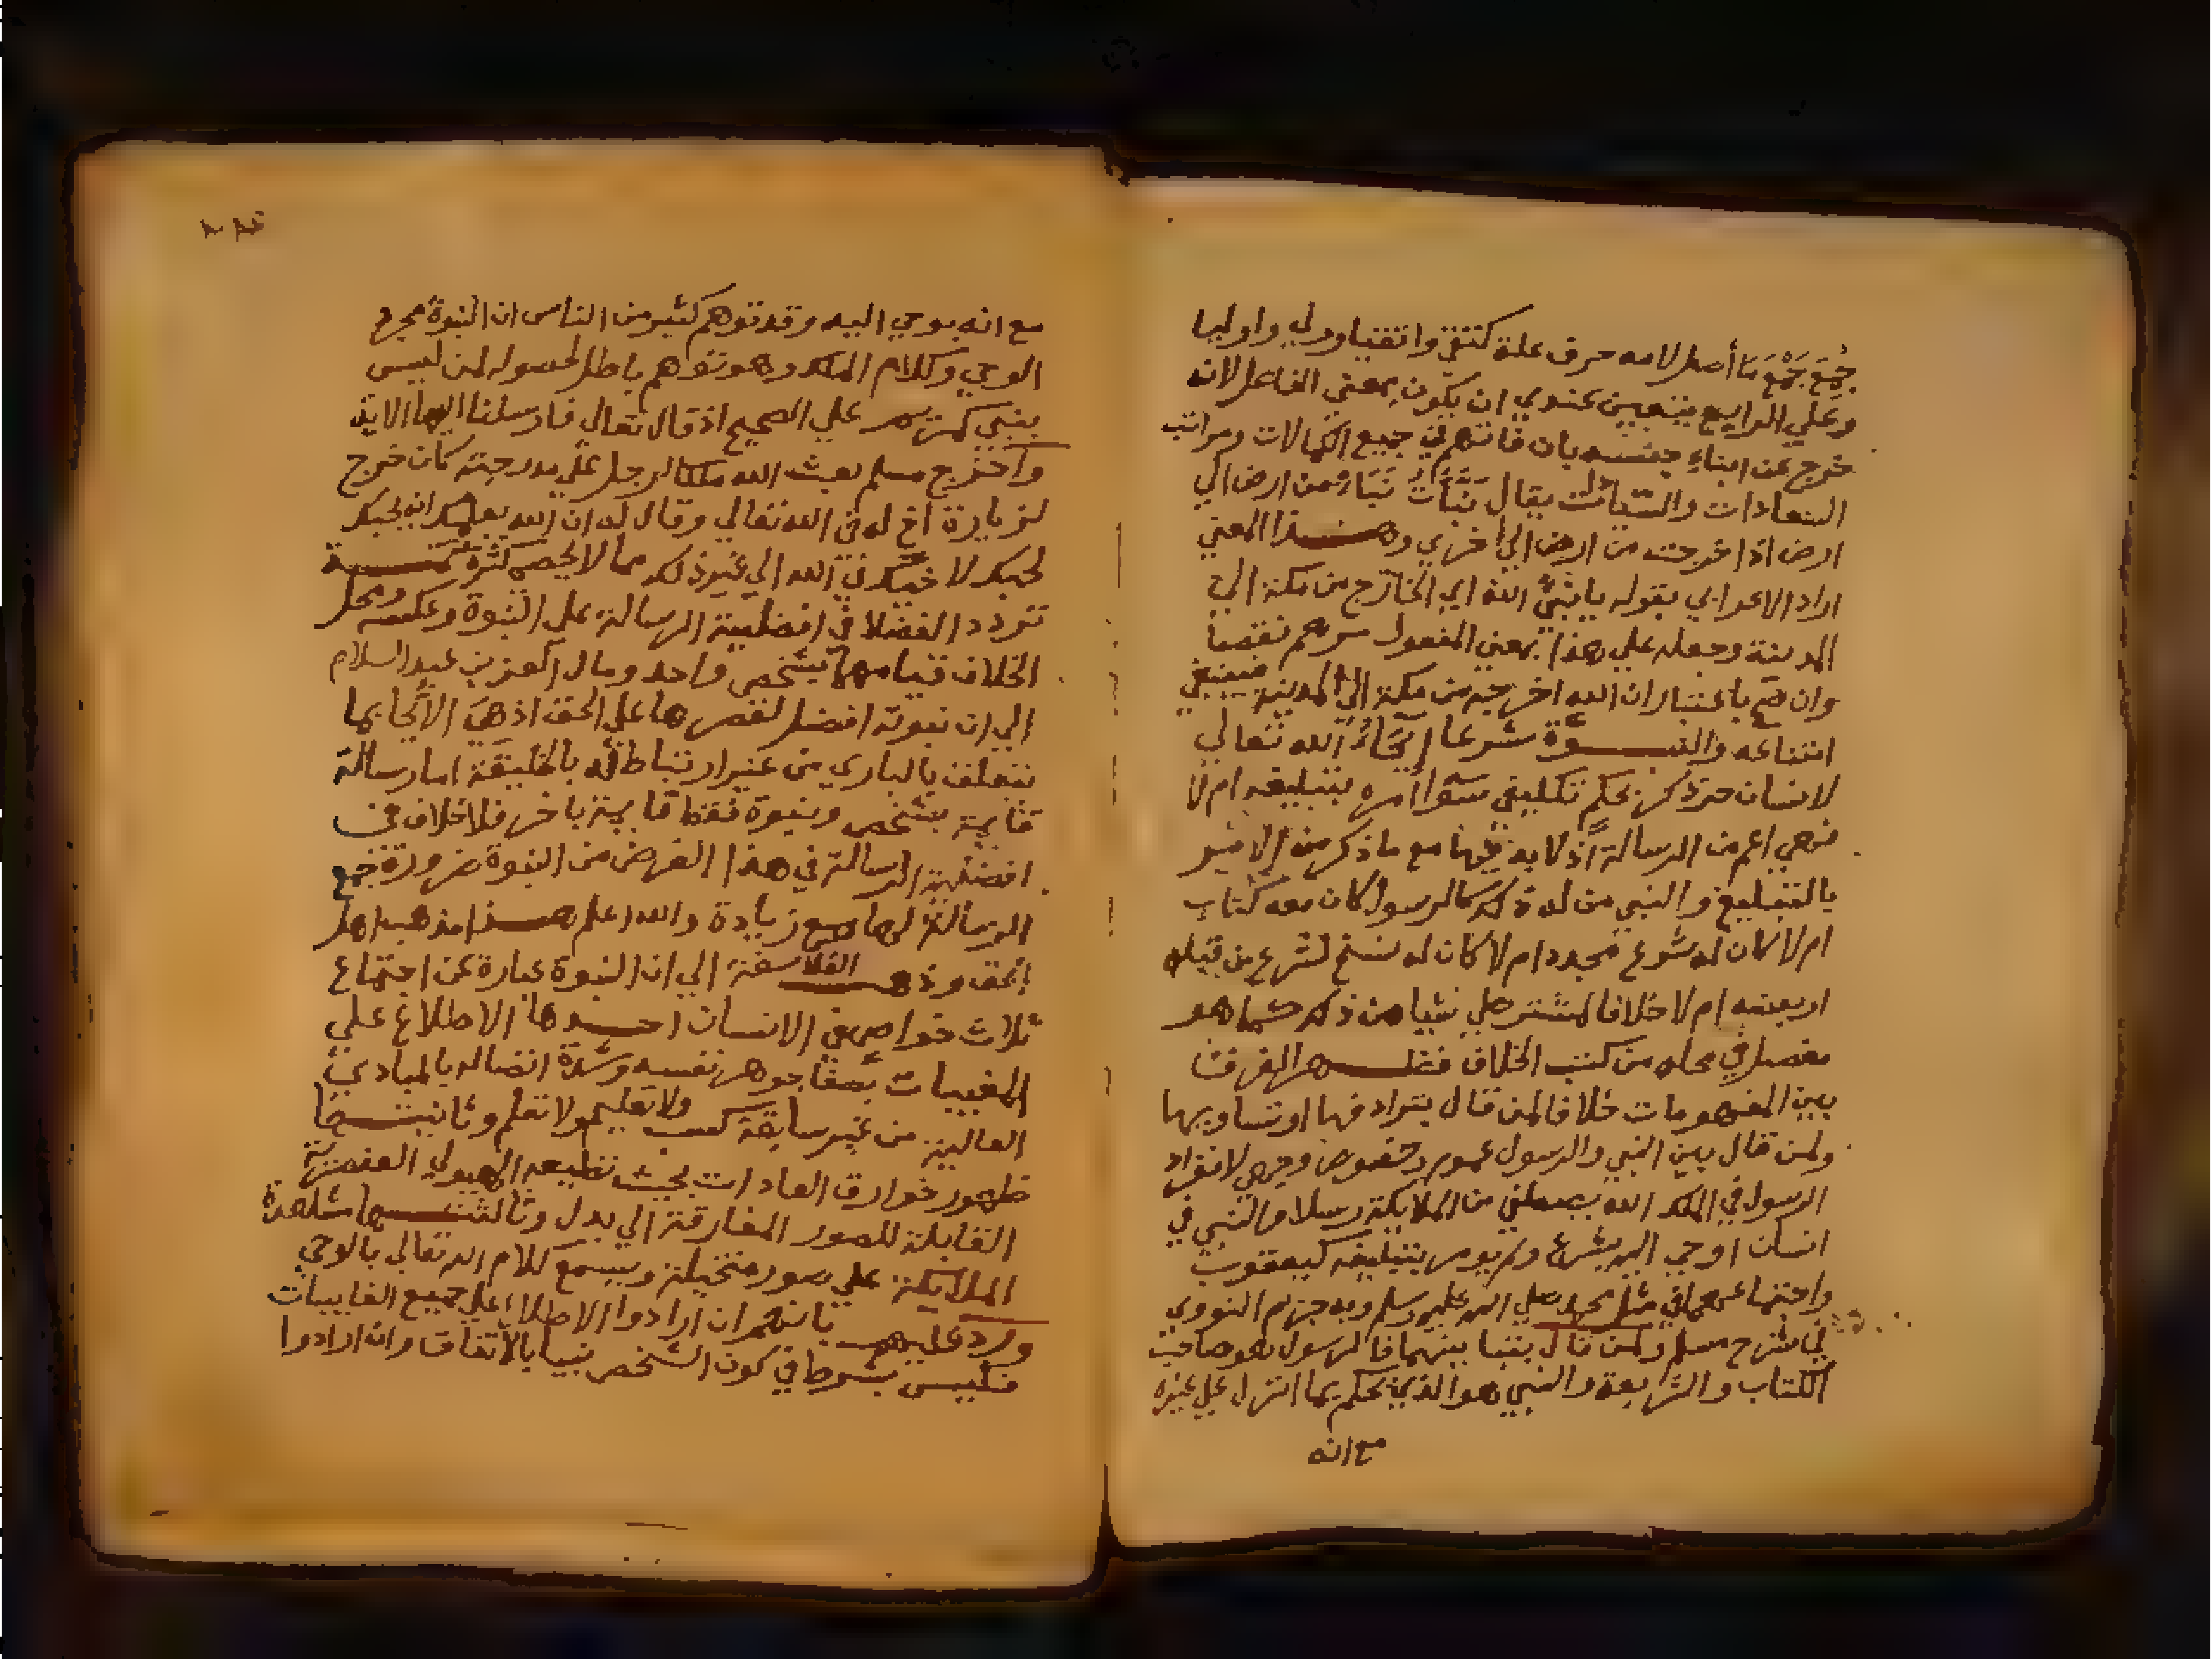 جُمِعَ جَمْعَ مَا أصل لامه حرف علة كتقي واتقيا وولي واوليا
وعلي الرابع يتعين عندي ان يكون بمعني الفاعل لانه
خرج عن ابناء جنسه بان فاتهم في جميع الكمالات ومراتب
السعادات يقال نَبَأْتُ نَبَاءً من ارض الي
ارض اذا خرجت من ارض الي اخري وهذا المعني
اراد الاعرابي بقوله يا نبئ الله اي الخارج من مكة الي
المدينة وجعله علي هذا بمعني المفعول
وان صح باعتبار ان الله اخرجه من مكة الي المدينة فينبغي
امتناعه والنبوة شرعا إِيحَاءُ الله تعالي
لانسان حر ذكر بحكم تكليفي سوآ أمره بتبليغه ام لا
فهي اعم من الرسالة اذ لا بد فيها مع ما ذكر من الامر
بالتبليغ والنبي من له ذلك كالرسول كان معه كتاب
ام لا كان له شرع مجدد ام لا كان له نسخ لشرع من قبله
او بعضه ام لا خلافا لمشترطي شيا من ذلك كما هو
مفصل في محله من كتب الخلاف فظهر الفرق
بين المفهومات خلافا لمن قال بترادفها او تساويها
ولمن قال بين النبي والرسول عموم وخصوص وجهي لانفراد
الرسول في الملك الله يصطفي من الملايكة رسلا والنبي في
انسان اوحي اليه بشرع ولم يومر بتبليغه كيعقوب
واجتماعهما في مثل محمد صلي الله عليه وسلم وبه جزم النووي
في شرح مسلم ولمن قال بينهما فالرسول هو صاحب
الكتاب والشريعة والنبي هو الذي يحكم بما انزل علي غيره
مع انه
مع انه يوحي اليه وقد توهم كثير من الناس ان النبوة مجرد
الوحي وكلام الملك وهو توهم باطل لحصوله لمن ليس
بنبي كمريم علي الصحيح اذ قال تعالي فارسلنا اليها الاية
واخرج مسلم بعث الله ملكا لرجل علي مدرجته كان خرج
لزيارة اخ له في الله تعالي وقال له ان الله يعلمك انه يحبك
لحبك لاخيك في الله الي غير ذلك مما لا يحصي كثرة
تردد الفضلا في افضلية الرسالة علي النبوة وعكسه ومحل
الخلاف قيامهما بشخص واحد ومال العز بن عبد السلام
الي ان نبوته افضل لقصرها علي الحق اذ هي الايحا بما
يتعلق بالباري من غير ارتباط له بالخليقة اما رسالة
قايمة بشخص ونبوة فقط قايمة باخر فلا خلاف في
افضلية الرسالة في هذا الفرض من النبوة ضرورة جمع
الرسالة لها مع زيادة والله اعلم هذا مذهب اهل
الحق وذهب الفلاسفة الي ان النبوة عبارة عن اجتماع
ثلاث خواص في الانسان احدها الاطلاع علي
المغيبات بصفا جوهر نفسه وشدة اتصاله بالمبادي
العالية من غير سابقة كسب ولا تعليم ولا تعلم وثانيتها
ظهور خوارق العادات بحيث تطيعه الهيولي العنصرية
القابلة للصور المفارقة الي بدل وثالثتها مشاهدة
الملايكة علي صور متخيلة ويسمع كلام الله تعالي بالوحي
ورد عليهم بانهم ان ارادوا الاطلاع علي جميع الغايبات
فليس بشرط في كون الشخص نبيا بالاتفاق وان ارادوا